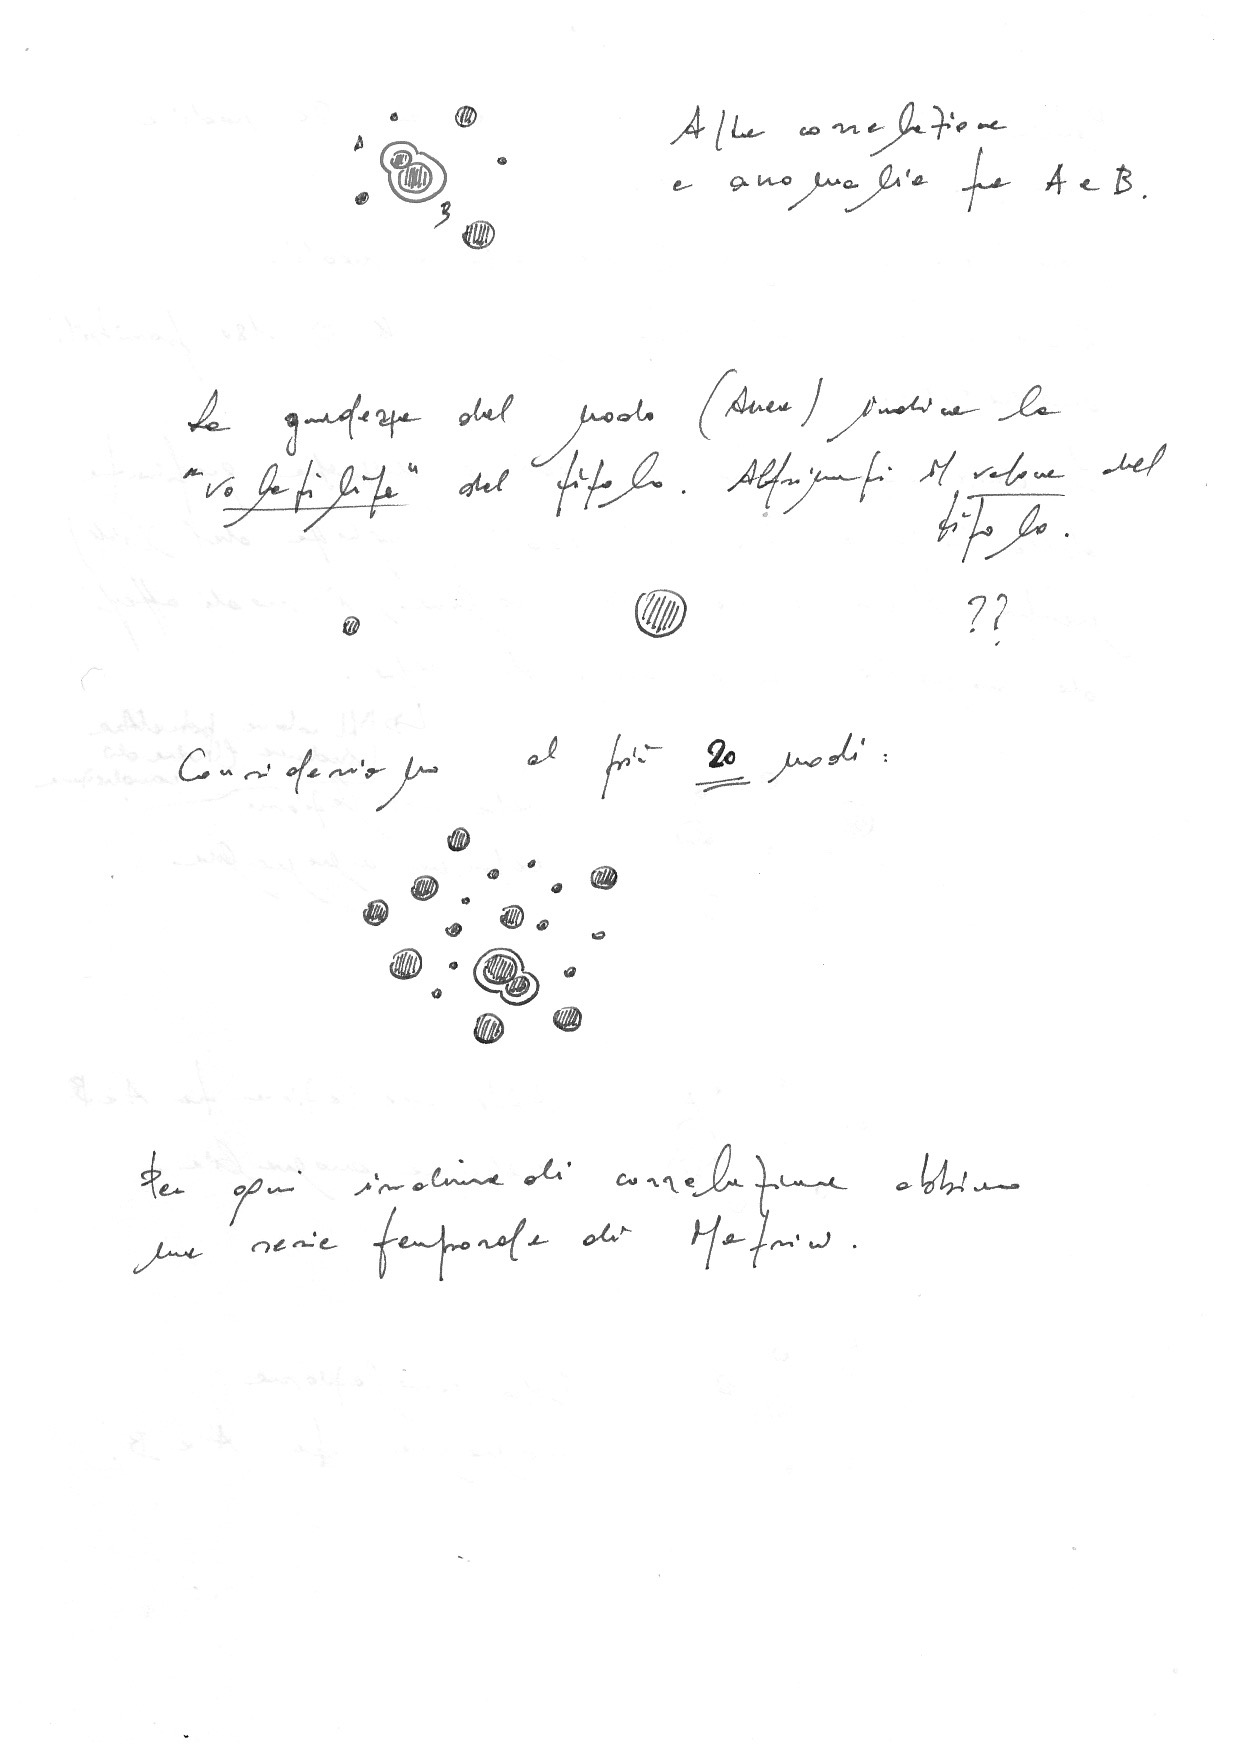 A
B
Alta correlazione
e anomalia fra A e B.
La grandezza del nodo (Area) indica la
"volatilità" del titolo. Altrimenti il valore del
titolo.
??
Consideriamo al più 20 nodi:
Per ogni indice di correlazione abbiamo
una serie temporale di Matrici.